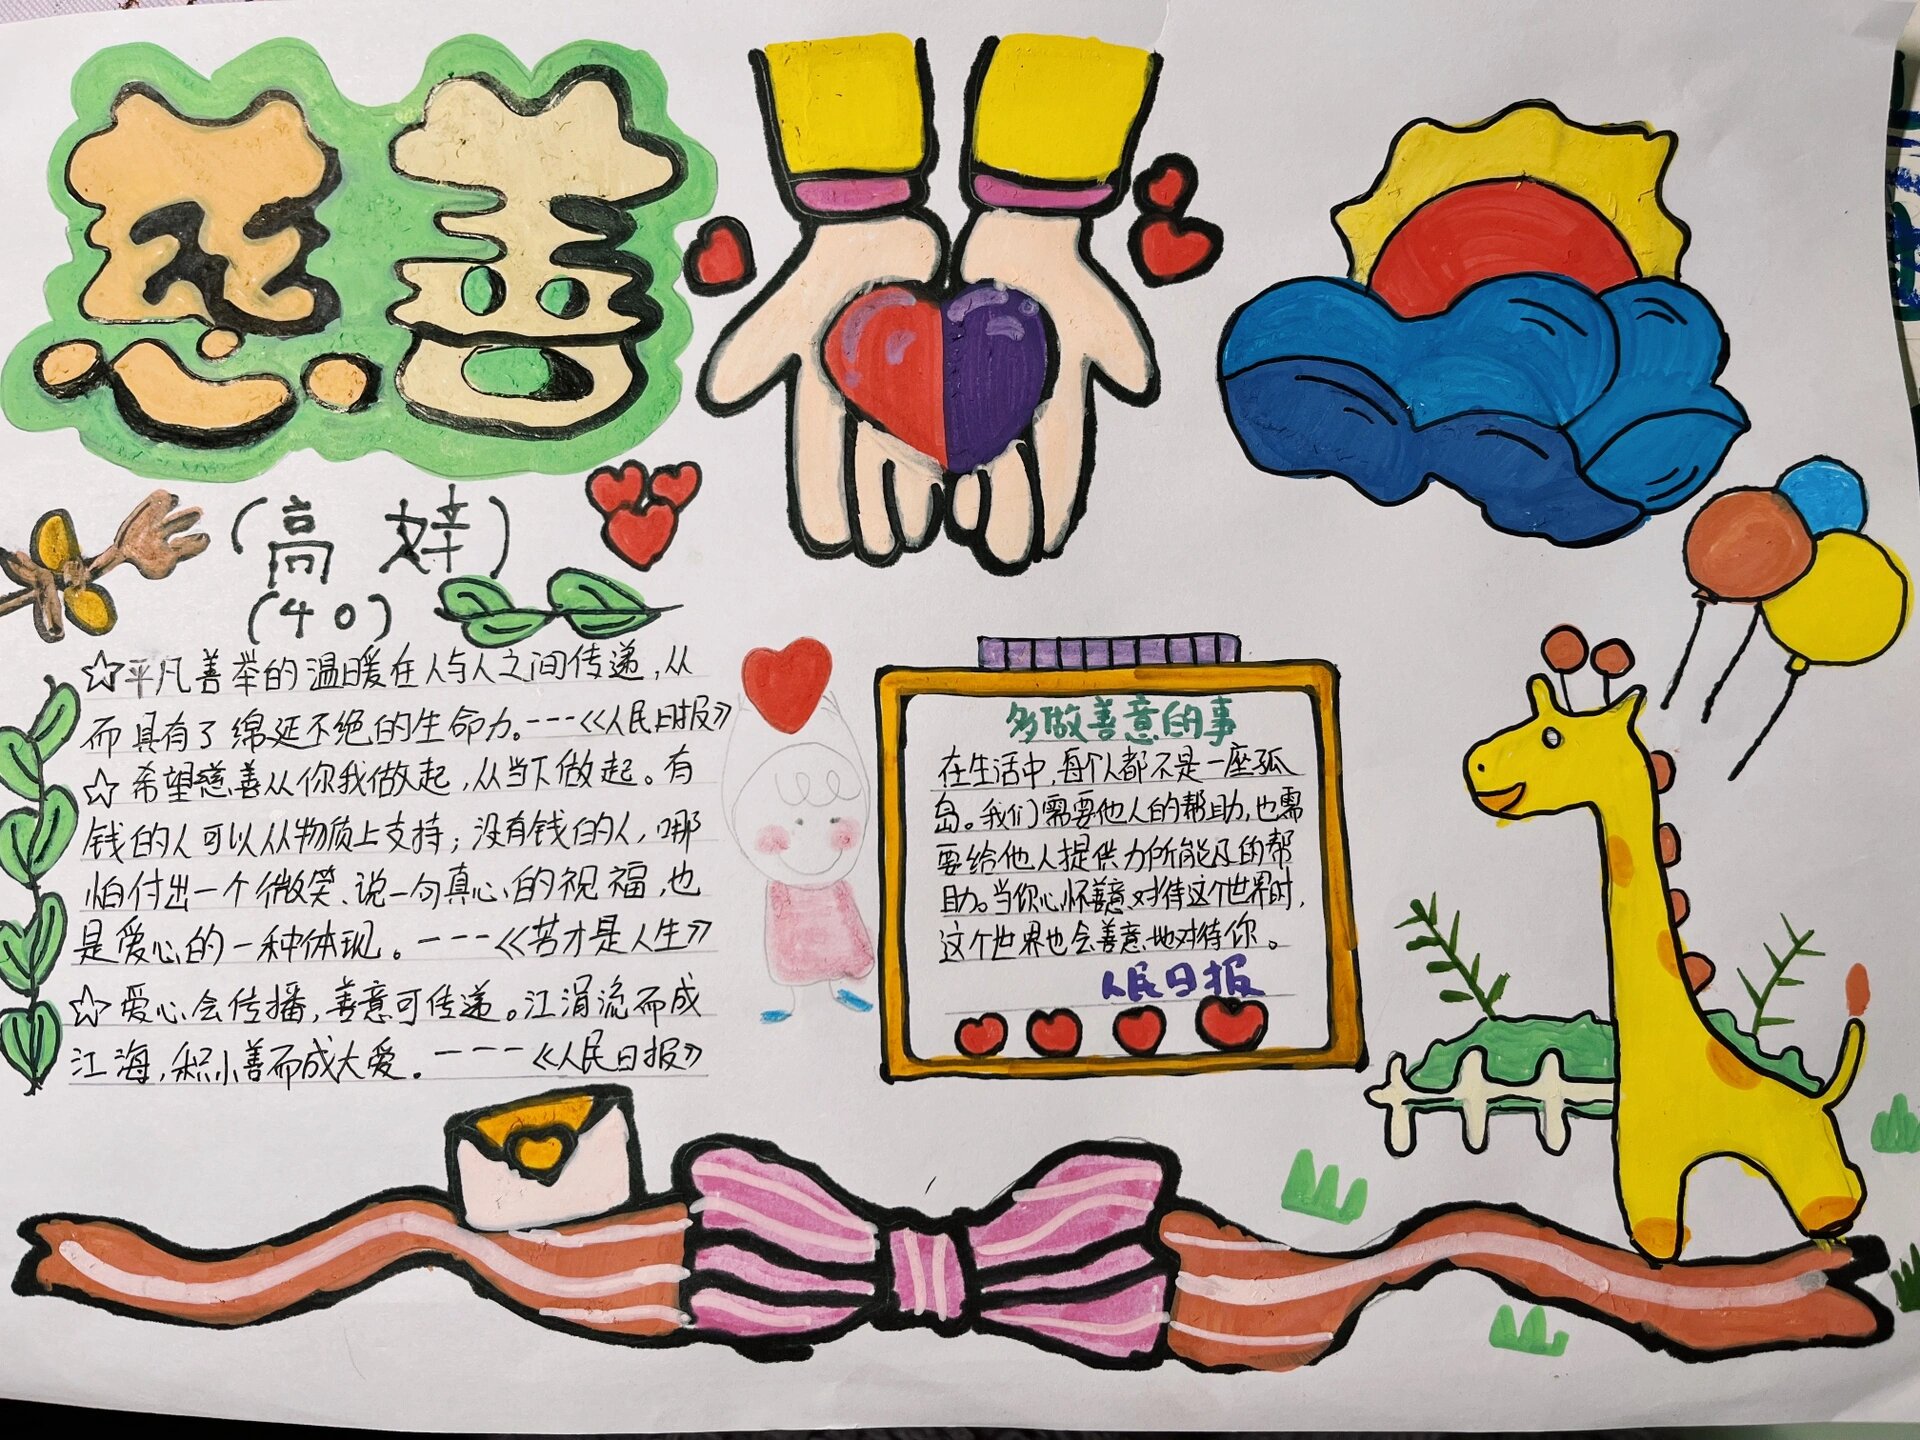 慈善
(高 婞)
(40)
☆平凡善举的温暖在人与人之间传递,从
而具有了绵延不绝的生命力。---《人民日报》
☆希望慈善从你我做起,从当下做起。有
钱的人可以从物质上支持;没有钱的人,哪
怕付出一个微笑、说一句真心的祝福,也
是爱心的一种体现。---《苦才是人生》
☆爱心会传播,善意可传递。江涓流而成
江海,积小善而成大爱。---《人民日报》
多做善意的事
在生活中,每个人都不是一座孤
岛。我们需要他人的帮助,也需
要给他人提供力所能及的帮
助。当你心怀善意对待这个世界时,
这个世界也会善意地对待你。
人民日报